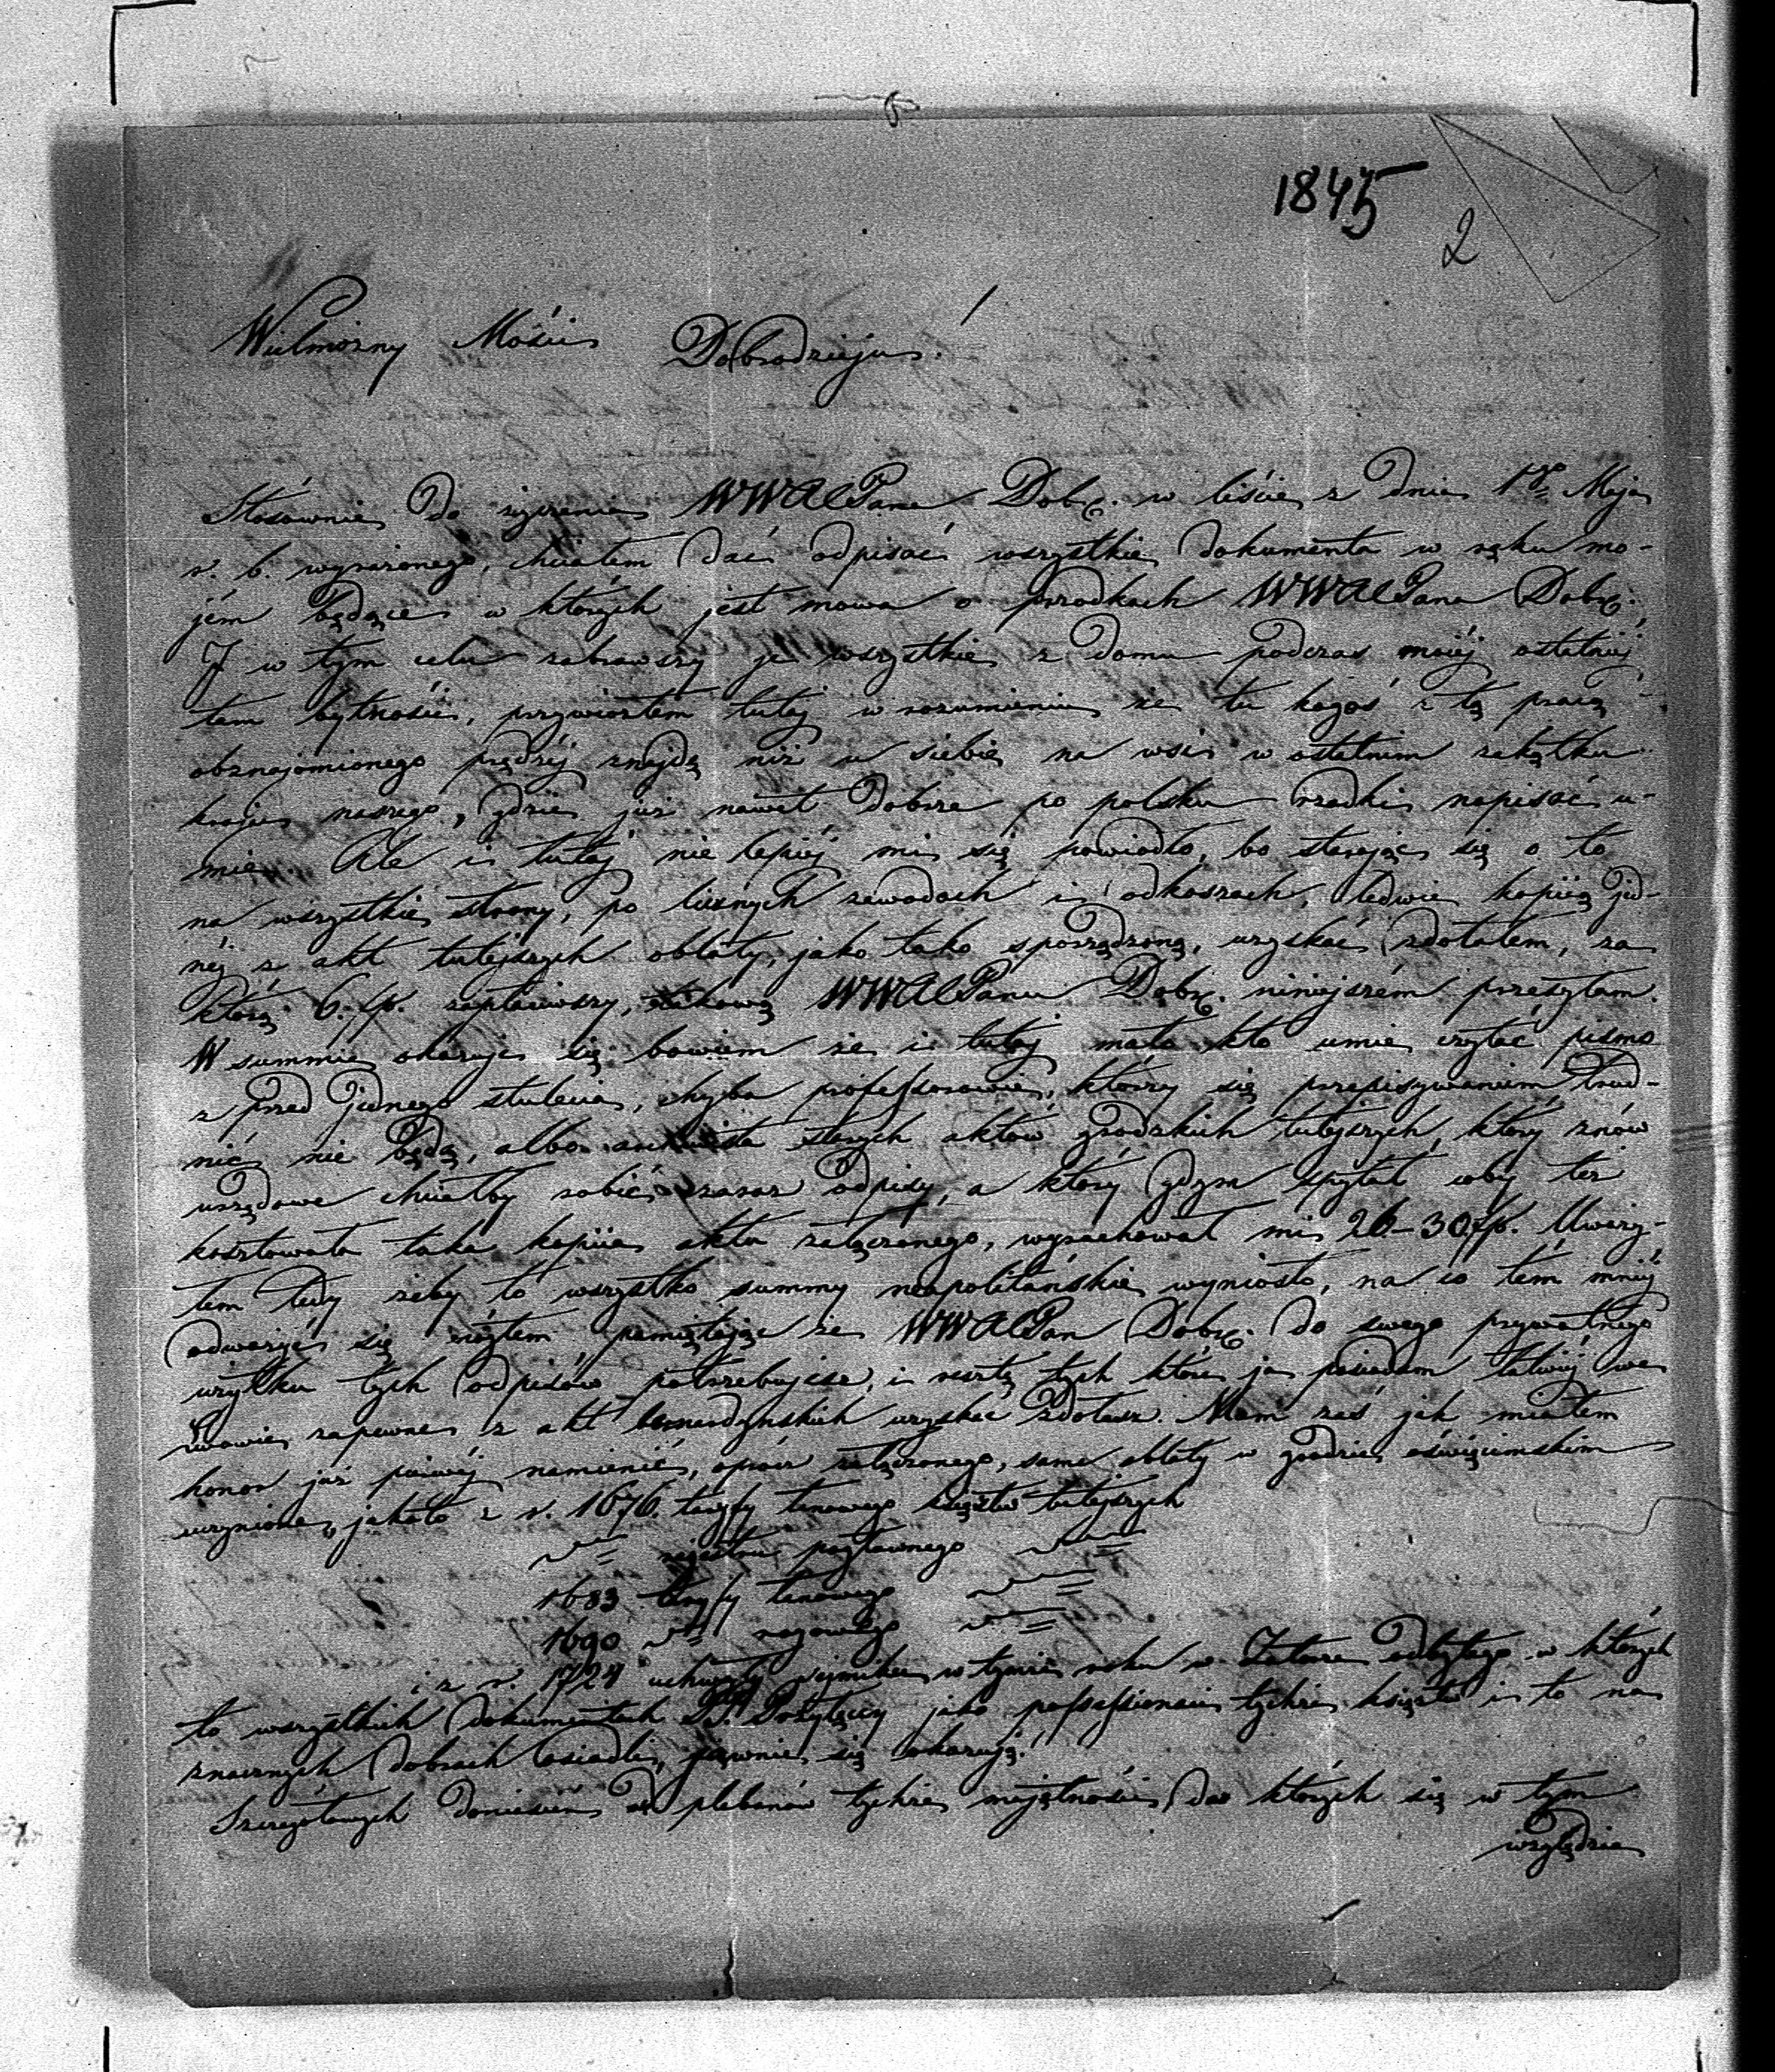 1845
2
Wielmożny Mości Dobrodzieju!
Stósownie do życzenia WWMPana Dobr. w liście z dnia 1go Maja
r. b. wyrażonego, chciałem dać odpisać wszystkie dokumenta w ręku mo-
jém będące w których jest mowa o przodkach WWMPana Dobr.
I w tym celu zabrawszy je wszystkie z domu podczas mojéj ostatniéj
tam bytności, przywiozłem tutaj w rozumieniu że tu kogoś z tą pracą
obznajomionego prędzéj znajdę niż u siebie na wsi w ostatnim zakątku
kraju naszego, gdzie już nawet dobrze po polsku rzadki napisać u-
mie. Ale i tutaj nie lepiéj mi się powiodło, bo starając się o to
na wszystkie strony, po licznych zawodach i odkoszach, ledwie kopiią jed-
néj z akt tutejszych oblaty, jako tako sporządzoną, uzyskać zdołałem, za
którą 6. złp. zapłaciwszy, takową WWMPanu Dobr. niniejszém przesyłam.
W summie okazuje się bowiem że i tutaj mało kto umie czytać pismo
z przed jednego stulecia, chyba professorowie, którzy się przepisywaniem trud-
nić nie będą, albo archiwista starych aktów grodzkich tutejszych, który znów
urzędowe chciałby robić zaraz odpisy, a który gdym spytał coby też
kosztowała taka kopiia aktu załączonego, wyrachował mi 26-30 złp. Uważy-
łem tedy żeby to wszystko summy neapolitańskie wyniosło, na co tém mniéj
odważyć się mogłem, pamiętając że WWMPan Dobr. do swego prywatnego
użytku tych odpisów potrzebujesz, i resztę tych które ja posiadam łatwiéj we
Lwowie zapewne z akt bernardyńskich uzyskać zdołasz. Mam zaś jak miałem
honor już piérwéj namienić, oprócz załączonego, same oblaty w grodzie oświęcimskim
uczynione, jakoto z r. 1676. taryfy łanowego księstw tutejszych
rejestru pogłównego
1683 taryfy łanowego
1690
i z r. 1724 uchwały sejmiku w tymże roku w Zatorze odbytego w których
to wszystkich dokumentach PP. jako possessionaci tychże księstw i to na
znacznych dobrach osiedli, jawnie się okazują.
Szczegółowych doniesień od plebanów tychże majętności, do których się w tym
względzie